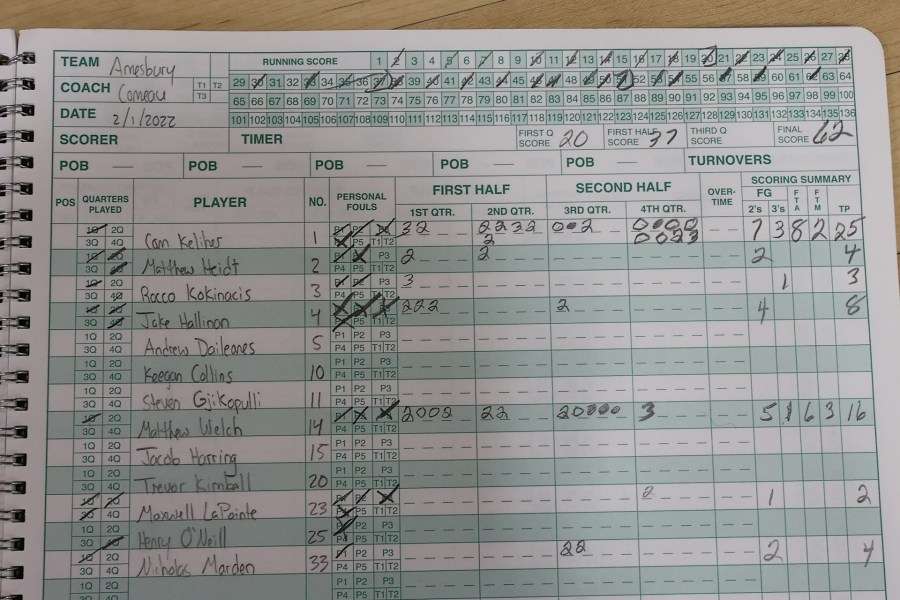 TEAM Amesbury
RUNNING SCORE 1 2 3 4 5 6 7 8 9 10 11 12 13 14 15 16 17 18 19 20 21 22 23 24 25 26 27 28
COACH Comeau T1 T2 T3
29 30 31 32 33 34 35 36 37 38 39 40 41 42 43 44 45 46 47 48 49 50 51 52 53 54 55 56 57 58 59 60 61 62 63 64
65 66 67 68 69 70 71 72 73 74 75 76 77 78 79 80 81 82 83 84 85 86 87 88 89 90 91 92 93 94 95 96 97 98 99 100
DATE 2/1/2022
101 102 103 104 105 106 107 108 109 110 111 112 113 114 115 116 117 118 119 120 121 122 123 124 125 126 127 128 129 130 131 132 133 134 135 136
SCORER TIMER FIRST Q SCORE 20 FIRST HALF SCORE 37 THIRD Q SCORE FINAL SCORE 62
POB — POB — POB — POB — POB — TURNOVERS
POS QUARTERS PLAYED PLAYER NO. PERSONAL FOULS FIRST HALF SECOND HALF OVER-TIME SCORING SUMMARY
1ST QTR. 2ND QTR. 3RD QTR. 4TH QTR. FG 2's 3's FTA FTM TP
1Q 2Q 3Q 4Q Cam Keliher 1 P1 P2 P3 P4 P5 T1 T2 32 2232 2 7 3 8 2 25
1Q 2Q 3Q 4Q Matthew Heidt 2 P1 P2 P3 P4 P5 T1 T2 2 2 2 4
1Q 2Q 3Q 4Q Rocco Kokinacis 3 P1 P2 P3 P4 P5 T1 T2 3 1 3
1Q 2Q 3Q 4Q Jake Hallinan 4 P1 P2 P3 P4 P5 T1 T2 222 2 4 8
1Q 2Q 3Q 4Q Andrew Daileanes 5 P1 P2 P3 P4 P5 T1 T2
1Q 2Q 3Q 4Q Keegan Collins 10 P1 P2 P3 P4 P5 T1 T2
1Q 2Q 3Q 4Q Steven Gjikopulli 11 P1 P2 P3 P4 P5 T1 T2
1Q 2Q 3Q 4Q Matthew Welch 14 P1 P2 P3 P4 P5 T1 T2 22 3 5 1 6 3 16
1Q 2Q 3Q 4Q Jacob Harring 15 P1 P2 P3 P4 P5 T1 T2
1Q 2Q 3Q 4Q Trevor Kimball 20 P1 P2 P3 P4 P5 T1 T2
1Q 2Q 3Q 4Q Maxwell LaPointe 23 P1 P2 P3 P4 P5 T1 T2 2 1 2
1Q 2Q 3Q 4Q Henry O'Neill 25 P1 P2 P3 P4 P5 T1 T2
1Q 2Q 3Q 4Q Nicholas Marden 33 P1 P2 P3 P4 P5 T1 T2 22 2 4
1Q 2Q 3Q 4Q P1 P2 P3 P4 P5 T1 T2